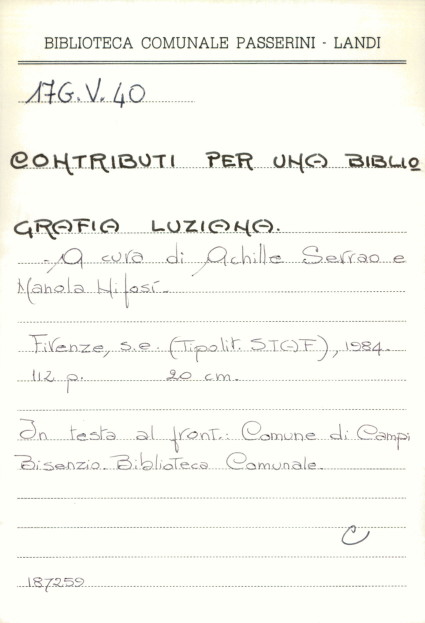 BIBLIOTECA COMUNALE PASSERINI - LANDI
17G.V.40
CONTRIBUTI PER UNA BIBLIO
GRAFIA LUZIANA.
- A cura di Achille Serrao e
Manola Nifosí.-
Firenze, s.e. (Tipolit. STAF), 1984.
112 p. 20 cm.
In testa al front.: Comune di Campi
Bisenzio. Biblioteca Comunale.
C
187259